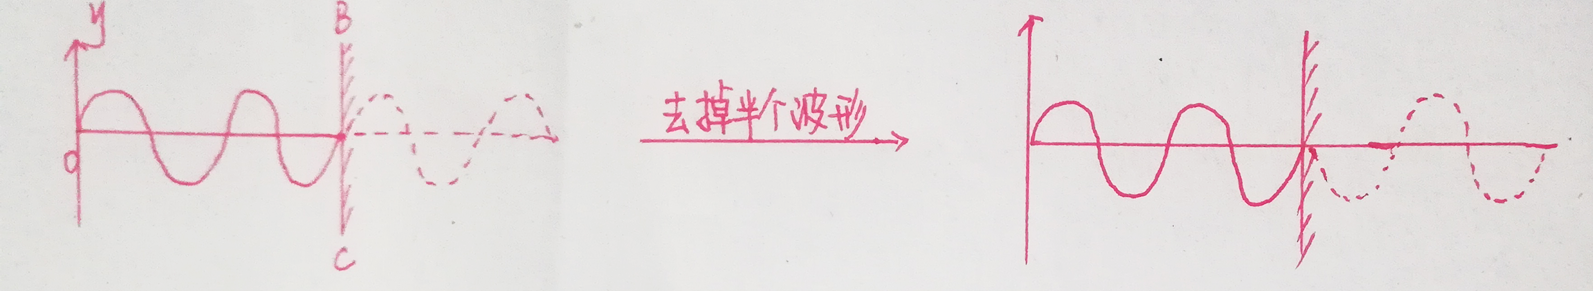 y
B
O
C
去掉半个波形